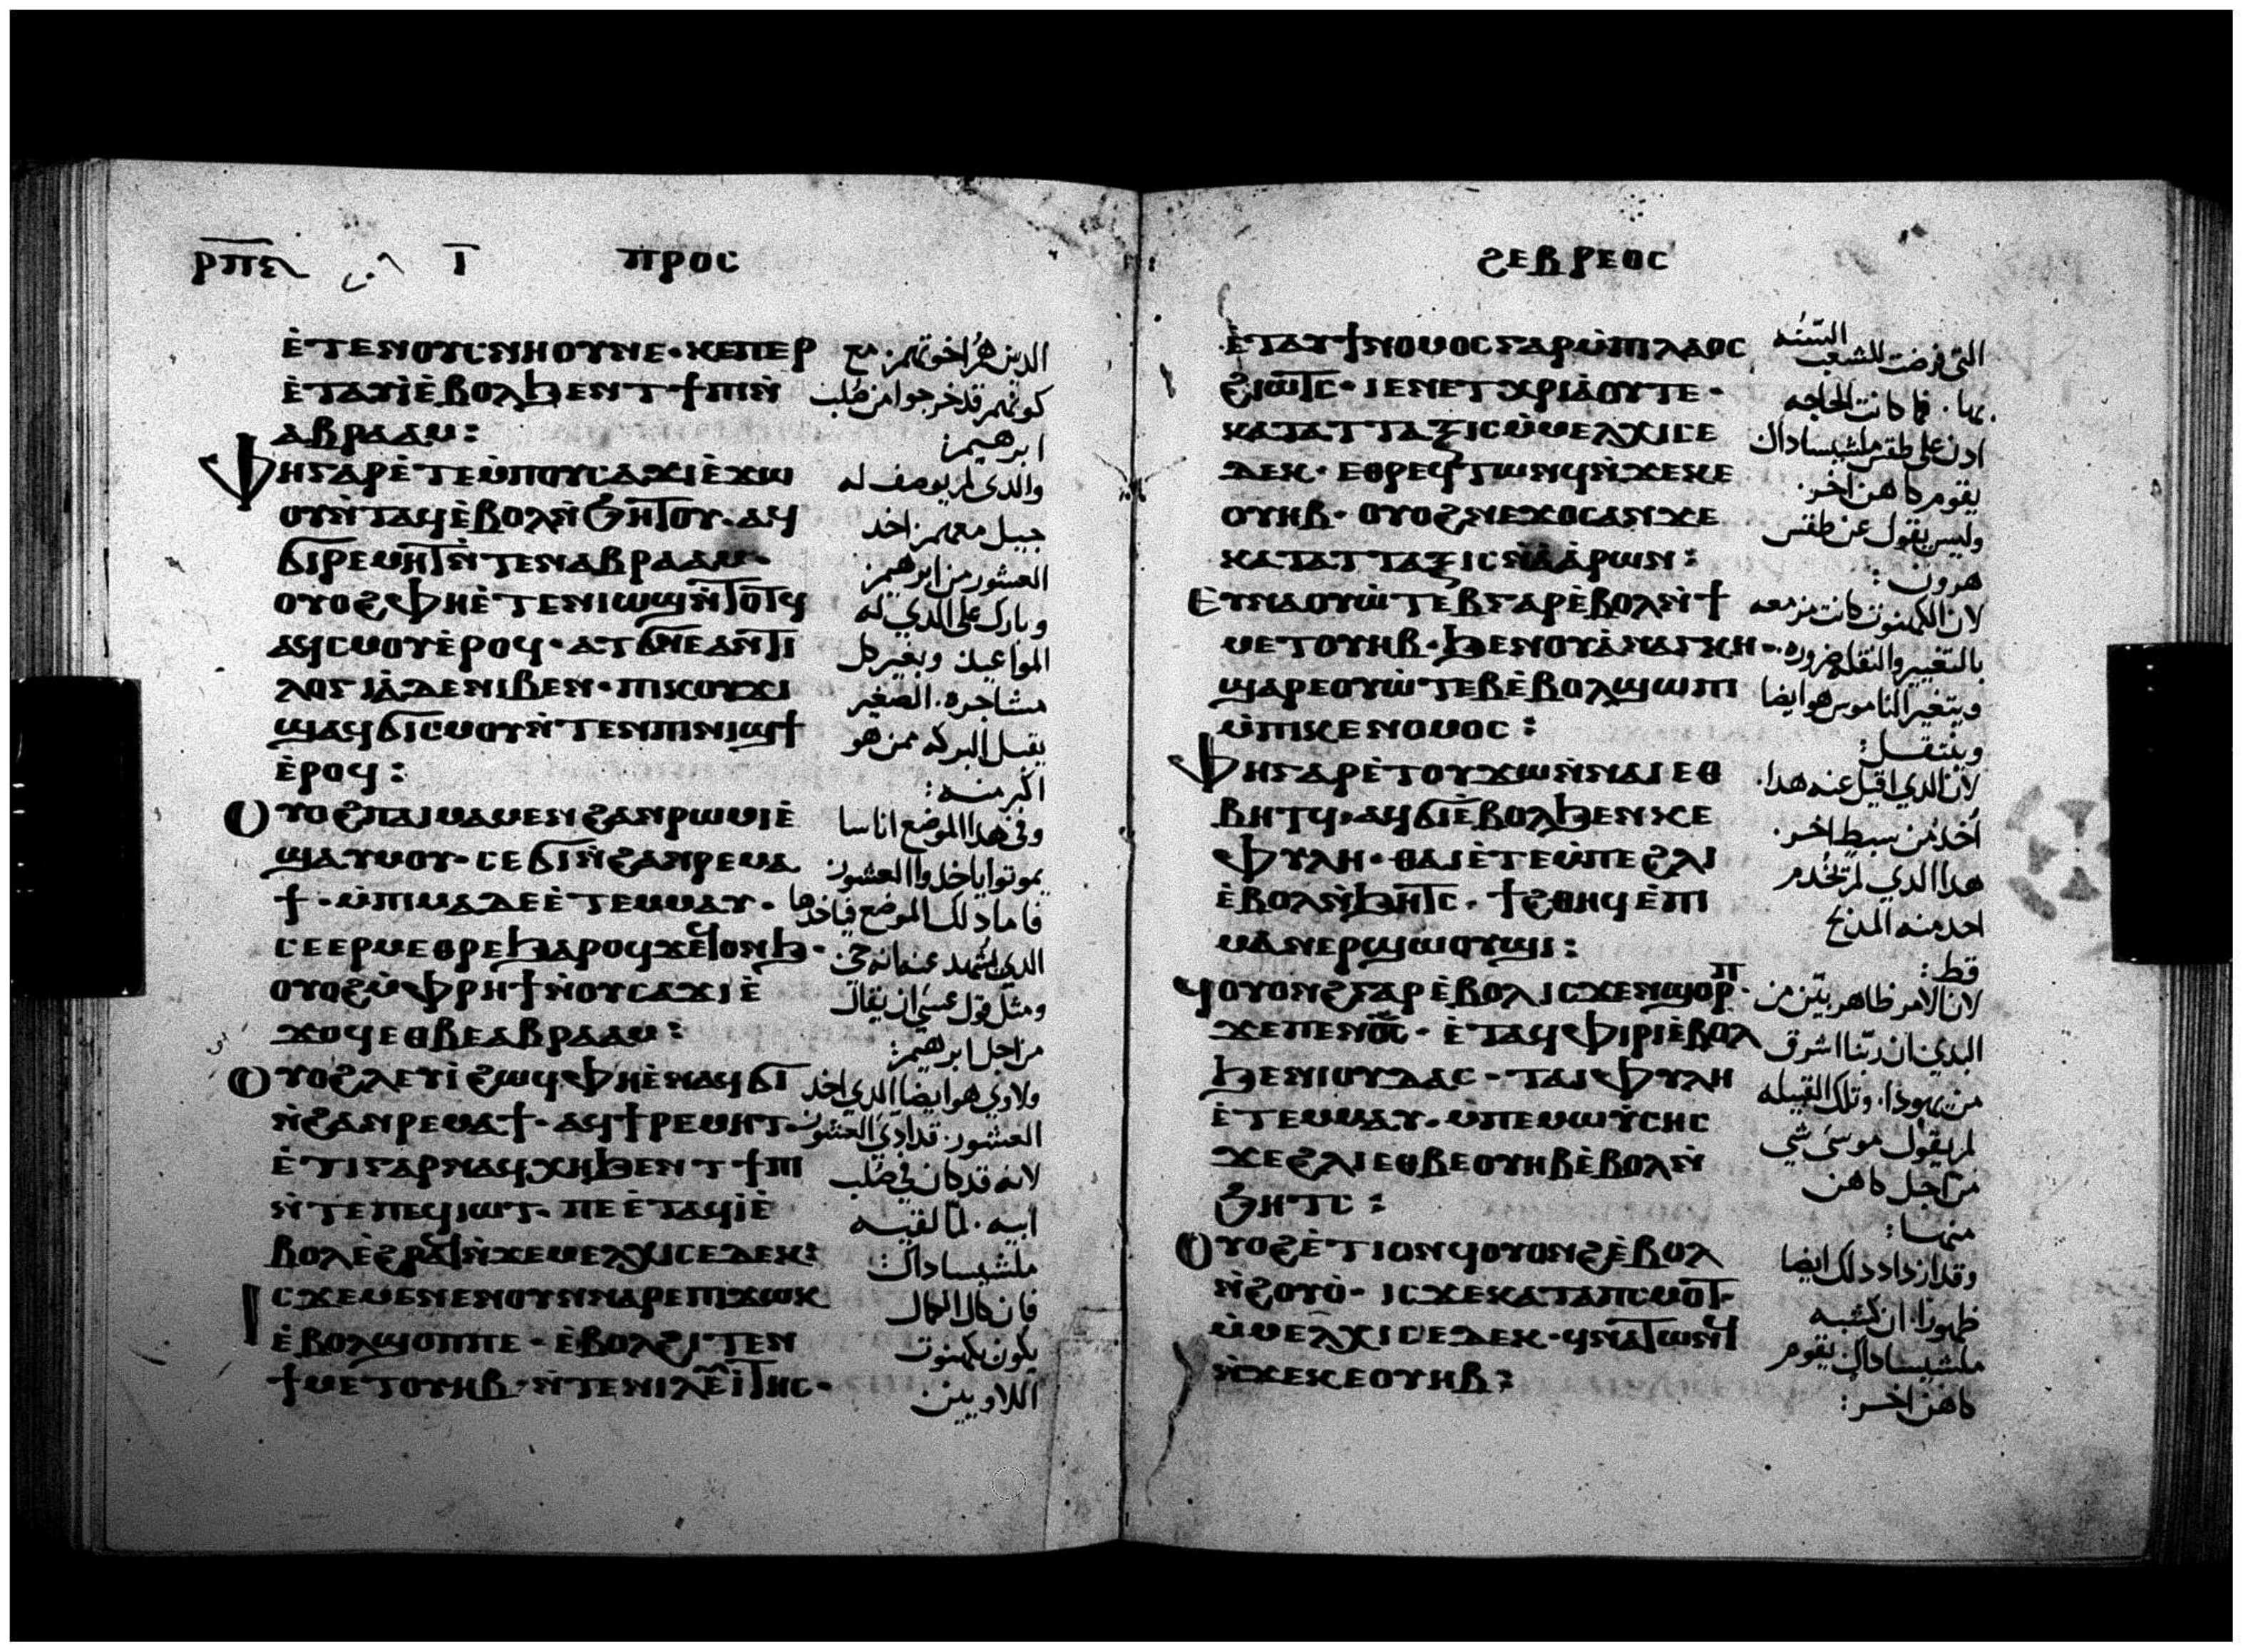 ⲣⲡⲉ
ⲓ̅ ⲡⲣⲟⲥ
ⲉ̀ⲧⲉⲛⲟⲩⲥⲛⲏⲟⲩⲛⲉ· ⲕⲉⲡⲉⲣ
ⲉ̀ⲧⲁⲩⲓ̀ⲉ̀ⲃⲟⲗϧⲉⲛⲧϯⲡⲓⲛ̀
ⲁⲃⲣⲁⲁⲙ:
ⲫⲏⲅⲁⲣⲉ̀ⲧⲉⲙ̀ⲡⲟⲩⲥⲁϫⲓⲉ̀ϫⲱ
ⲟⲩⲛ̀ⲧⲁϥⲉ̀ⲃⲟⲗⲛ̀ϧⲏⲧⲟⲩ· ⲁϥ
ϭⲓⲣⲉⲙⲏⲧⲛ̀ⲧⲉⲛⲁⲃⲣⲁⲁⲙ·
ⲟⲩⲟϩⲫⲏⲉ̀ⲧⲉⲛⲓⲱϣⲛ̀ⲧⲟⲧϥ
ⲁϥⲥⲙⲟⲩⲉ̀ⲣⲟϥ· ⲁⲧϭⲛⲉⲁⲛⲧⲓ
ⲗⲟⲅⲓⲁ̀ⲇⲉⲛⲓⲃⲉⲛ· ⲡⲓⲕⲟⲩϫⲓ
ϣⲁϥϭⲓⲥⲙⲟⲩⲛ̀ⲧⲉⲛⲡⲓⲛⲓϣϯ
ⲉ̀ⲣⲟϥ:
ⲟⲩⲟϩⲡⲁⲓⲙⲁⲙⲉⲛϩⲁⲛⲣⲱⲙⲓⲉ̀
ϣⲁⲩⲙⲟⲩ· ⲥⲉϭⲓⲛ̀ϩⲁⲛⲣⲉⲙⲁ
ϯ· ⲙ̀ⲡⲓⲙⲁⲇⲉⲉ̀ⲧⲉⲙⲙⲁⲩ·
ⲥⲉⲉⲣⲙⲉⲑⲣⲉϧⲁⲣⲟϥϫⲉϥⲟⲛϧ·
ⲟⲩⲟϩⲙ̀ⲫⲣⲏϯⲛ̀ⲟⲩⲥⲁϫⲓⲉ̀
ϫⲟϥⲉⲑⲃⲉⲁⲃⲣⲁⲁⲙ:
ⲟⲩⲟϩⲗⲉⲩⲓ̀ϩⲱϥⲫⲏⲉ̀ⲛⲁϥϭⲓ
ⲛ̀ϩⲁⲛⲣⲉⲙⲁϯ· ⲁϥϯⲣⲉⲙⲏⲧ·
ⲉ̀ⲧⲓⲅⲁⲣⲛⲁϥⲭⲏϧⲉⲛⲧϯⲡⲓ
ⲛ̀ⲧⲉⲡⲉϥⲓⲱⲧ· ⲡⲉⲉ̀ⲧⲁϥⲓ̀ⲉ̀
ⲃⲟⲗⲉ̀ϩⲣⲁϥⲛ̀ϫⲉⲙⲉⲗⲭⲓⲥⲉⲇⲉⲕ:
ⲓⲥϫⲉⲙⲉⲛⲉⲛⲟⲩⲛⲛⲁⲣⲉⲡⲓϫⲱⲕ
ⲉ̀ⲃⲟⲗϣⲟⲡⲡⲉ· ⲉ̀ⲃⲟⲗϩⲓⲧⲉⲛ
ϯⲙⲉⲧⲟⲩⲏⲃ· ⲛ̀ⲧⲉⲛⲓⲗⲉⲩⲓⲧⲏⲥ·
الدين هم اخوتهم مع
كونهم قد خرجوا من صلب
ابرهيم:
والدى لم يوصف له
جبيل معهم اخد
العشور من ابرهيم:
وبارك على الدي له
المواعيد وبغير كل
مشاجره. الصغير
يقبل البركه ممن هو
اكبر منه:
وفى هدا الموضع اناسا
يموتوا ياخدوا العشور
فاما دلك الموضع فياخدها
الدي شهد عنه انه حي:
ومثل قول عسى ان يقال
من اجل ابرهيم:
ولاوي هو ايضا الدي اخد
العشور. قد ادي العشور
لانه قد كان في صلب
ابيه. لما لقيه
ملشيساداك
فان كان الكمال
يكون بكهنوت
اللاويين
ϩⲉⲃⲣⲉⲟⲥ
ⲉ̀ⲧⲁⲩϯⲛⲟⲙⲟⲥⲅⲁⲣⲙ̀ⲡⲓⲗⲁⲟⲥ
ϩⲓⲱⲧⲥ· ⲓⲉⲛⲉⲧⲭⲣⲓⲁ̀ⲟⲩⲧⲉ·
ⲕⲁⲧⲁⲧⲧⲁⲝⲓⲥⲙ̀ⲙⲉⲗⲭⲓⲥⲉ
ⲇⲉⲕ· ⲉⲑⲣⲉϥⲧⲱⲛϥⲛ̀ϫⲉⲕⲉ
ⲟⲩⲏⲃ· ⲟⲩⲟϩⲛⲉϫⲟⲥⲁⲛϫⲉ
ⲕⲁⲧⲁⲧⲧⲁⲝⲓⲥⲛ̀ⲁ̀ⲁ̀ⲣⲱⲛ:
ⲉⲩⲛⲁⲟⲩⲱ̀ⲧⲉⲃⲅⲁⲣⲉ̀ⲃⲟⲗⲛ̀ϯ
ⲙⲉⲧⲟⲩⲏⲃ· ϧⲉⲛⲟⲩⲁ̀ⲛⲁⲅⲕⲏ·
ϣⲁⲣⲉⲟⲩⲱ̀ⲧⲉⲃⲉ̀ⲃⲟⲗϣⲱⲡⲓ
ⲙ̀ⲡⲓⲕⲉⲛⲟⲙⲟⲥ:
ⲫⲏⲅⲁⲣⲉ̀ⲧⲟⲩϫⲱⲛ̀ⲛⲁⲓⲉⲑ
ⲃⲏⲧϥ· ⲁϥϭⲓⲉ̀ⲃⲟⲗϧⲉⲛⲕⲉ
ⲫⲩⲗⲏ· ⲑⲁⲓⲉ̀ⲧⲉⲙ̀ⲡⲉϩⲗⲓ
ⲉ̀ⲃⲟⲗⲛ̀ϧⲏⲧⲥ· ϯϩⲑⲏϥⲉ̀ⲡⲓ
ⲙⲁⲛⲉⲣϣⲱⲟⲩϣⲓ:
ϥⲟⲩⲟⲛϩⲅⲁⲣⲉ̀ⲃⲟⲗⲓⲥϫⲉⲛϣⲟⲣⲡ·
ϫⲉⲡⲉⲛϭⲥ· ⲉ̀ⲧⲁϥⲫⲓⲣⲓⲉ̀ⲃⲟⲗ
ϧⲉⲛⲓⲟⲩⲇⲁⲥ· ⲧⲁⲓⲫⲩⲗⲏ
ⲉ̀ⲧⲉⲙⲙⲁⲩ· ⲙ̀ⲡⲉⲙⲱⲩ̀ⲥⲏⲥ
ϫⲉϩⲗⲓⲉⲑⲃⲉⲟⲩⲏⲃⲉ̀ⲃⲟⲗⲛ̀
ϧⲏⲧⲥ:
ⲟⲩⲟϩⲉ̀ⲧⲓⲟⲛϥⲟⲩⲟⲛϩⲉ̀ⲃⲟⲗ
ⲛ̀ϩⲟⲩⲟ̀· ⲓⲥϫⲉⲕⲁⲧⲁⲡⲥⲙⲟⲧ·
ⲙ̀ⲙⲉⲗⲭⲓⲥⲉⲇⲉⲕ· ϥⲛⲁⲧⲱⲛϥ
ⲛ̀ϫⲉⲕⲉⲟⲩⲏⲃ:
السّنه
التى فرضت للشعب
بها. فما كانت الحاجه
ادن على طقس ملشيساداك
يقوم كاهن اخر.
وليس يقول عن طقس
هرون:
لان الكهنوت كانت مزمعه
بالتغيير والنقله ضروره.
ويتغير الناموس هو ايضا
وينتقل:
لان الدي اقيل عنه هدا.
اخد من سبط اخر.
هدا الدي لم تخدم
احد منه المدبح
قط:
لان الامر ظاهر بيّن من
البدي ان ربنا اشرق
من يهودا. وتلك القبيله
لم يقول موسى شي
من اجل كاهن
منها:
وقد ازداد دلك ايضا
ظهورا. ان كشبه
ملشيساداك يقوم
كاهن اخر: